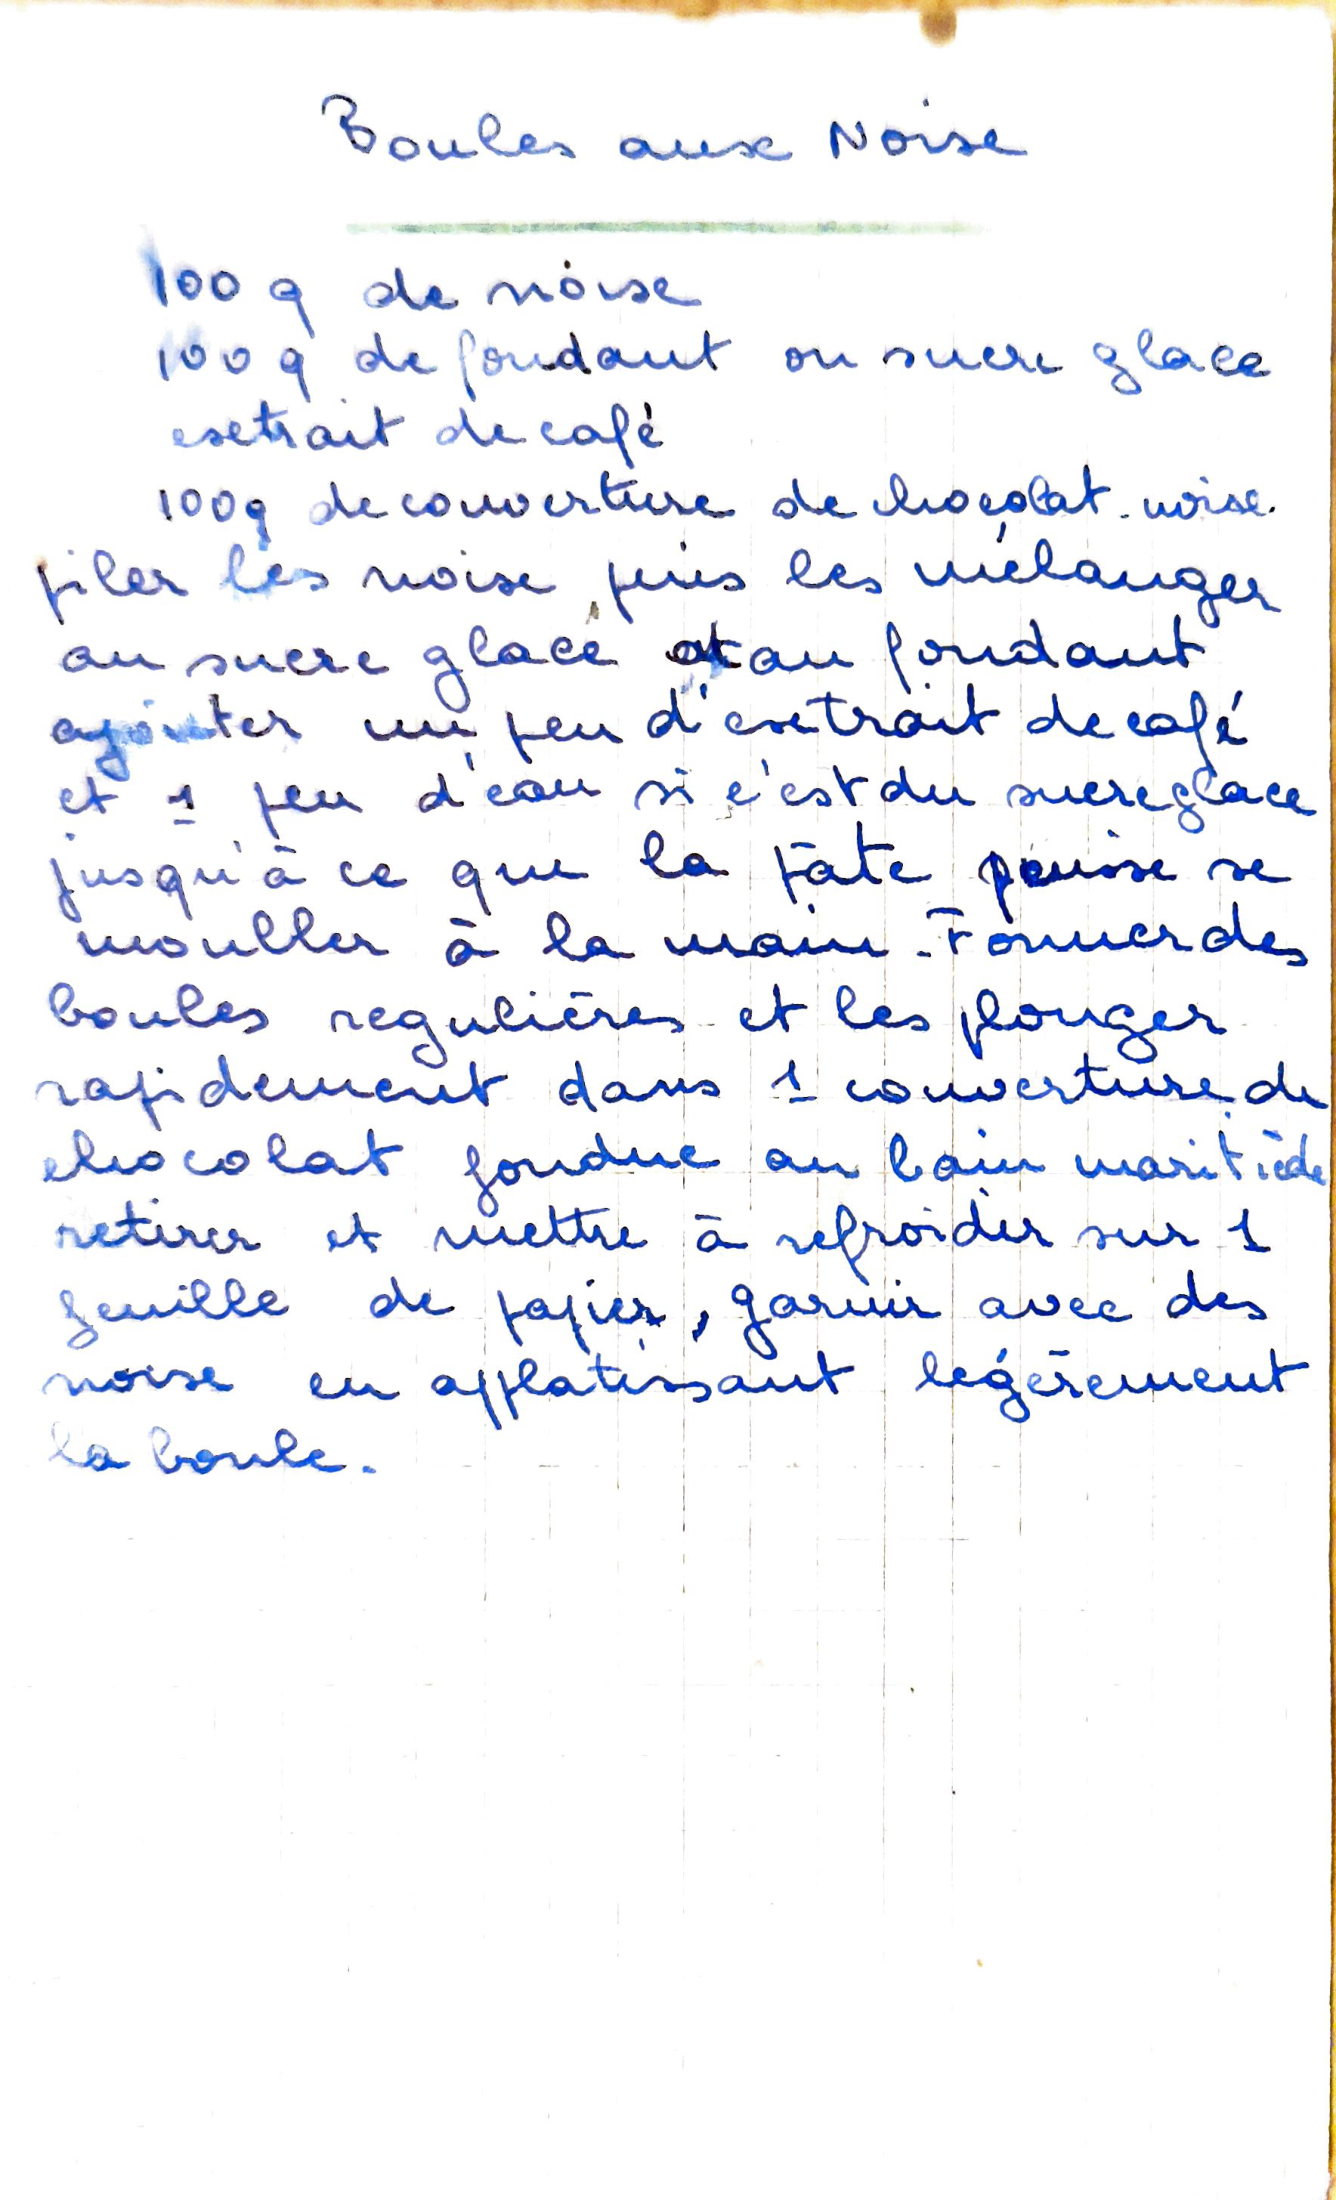 Boules aux Noix
100 g de noix
100 g de fondant ou sucre glace
extrait de café
100g de couverture de chocolat. noix.
piler les noix, puis les mélanger
au sucre glace et au fondant
ajouter un peu d'extrait de café
et 1 peu d'eau si c'est du sucre glace
jusqu'à ce que la pâte puisse se
mouller à la main. Former des
boules regulières et les plonger
rapidement dans 1 couverture de
chocolat fondue au bain mari tiède
retirer et mettre à refroidir sur 1
feuille de papier, garnir avec des
noix en applatissant légèrement
la boule.